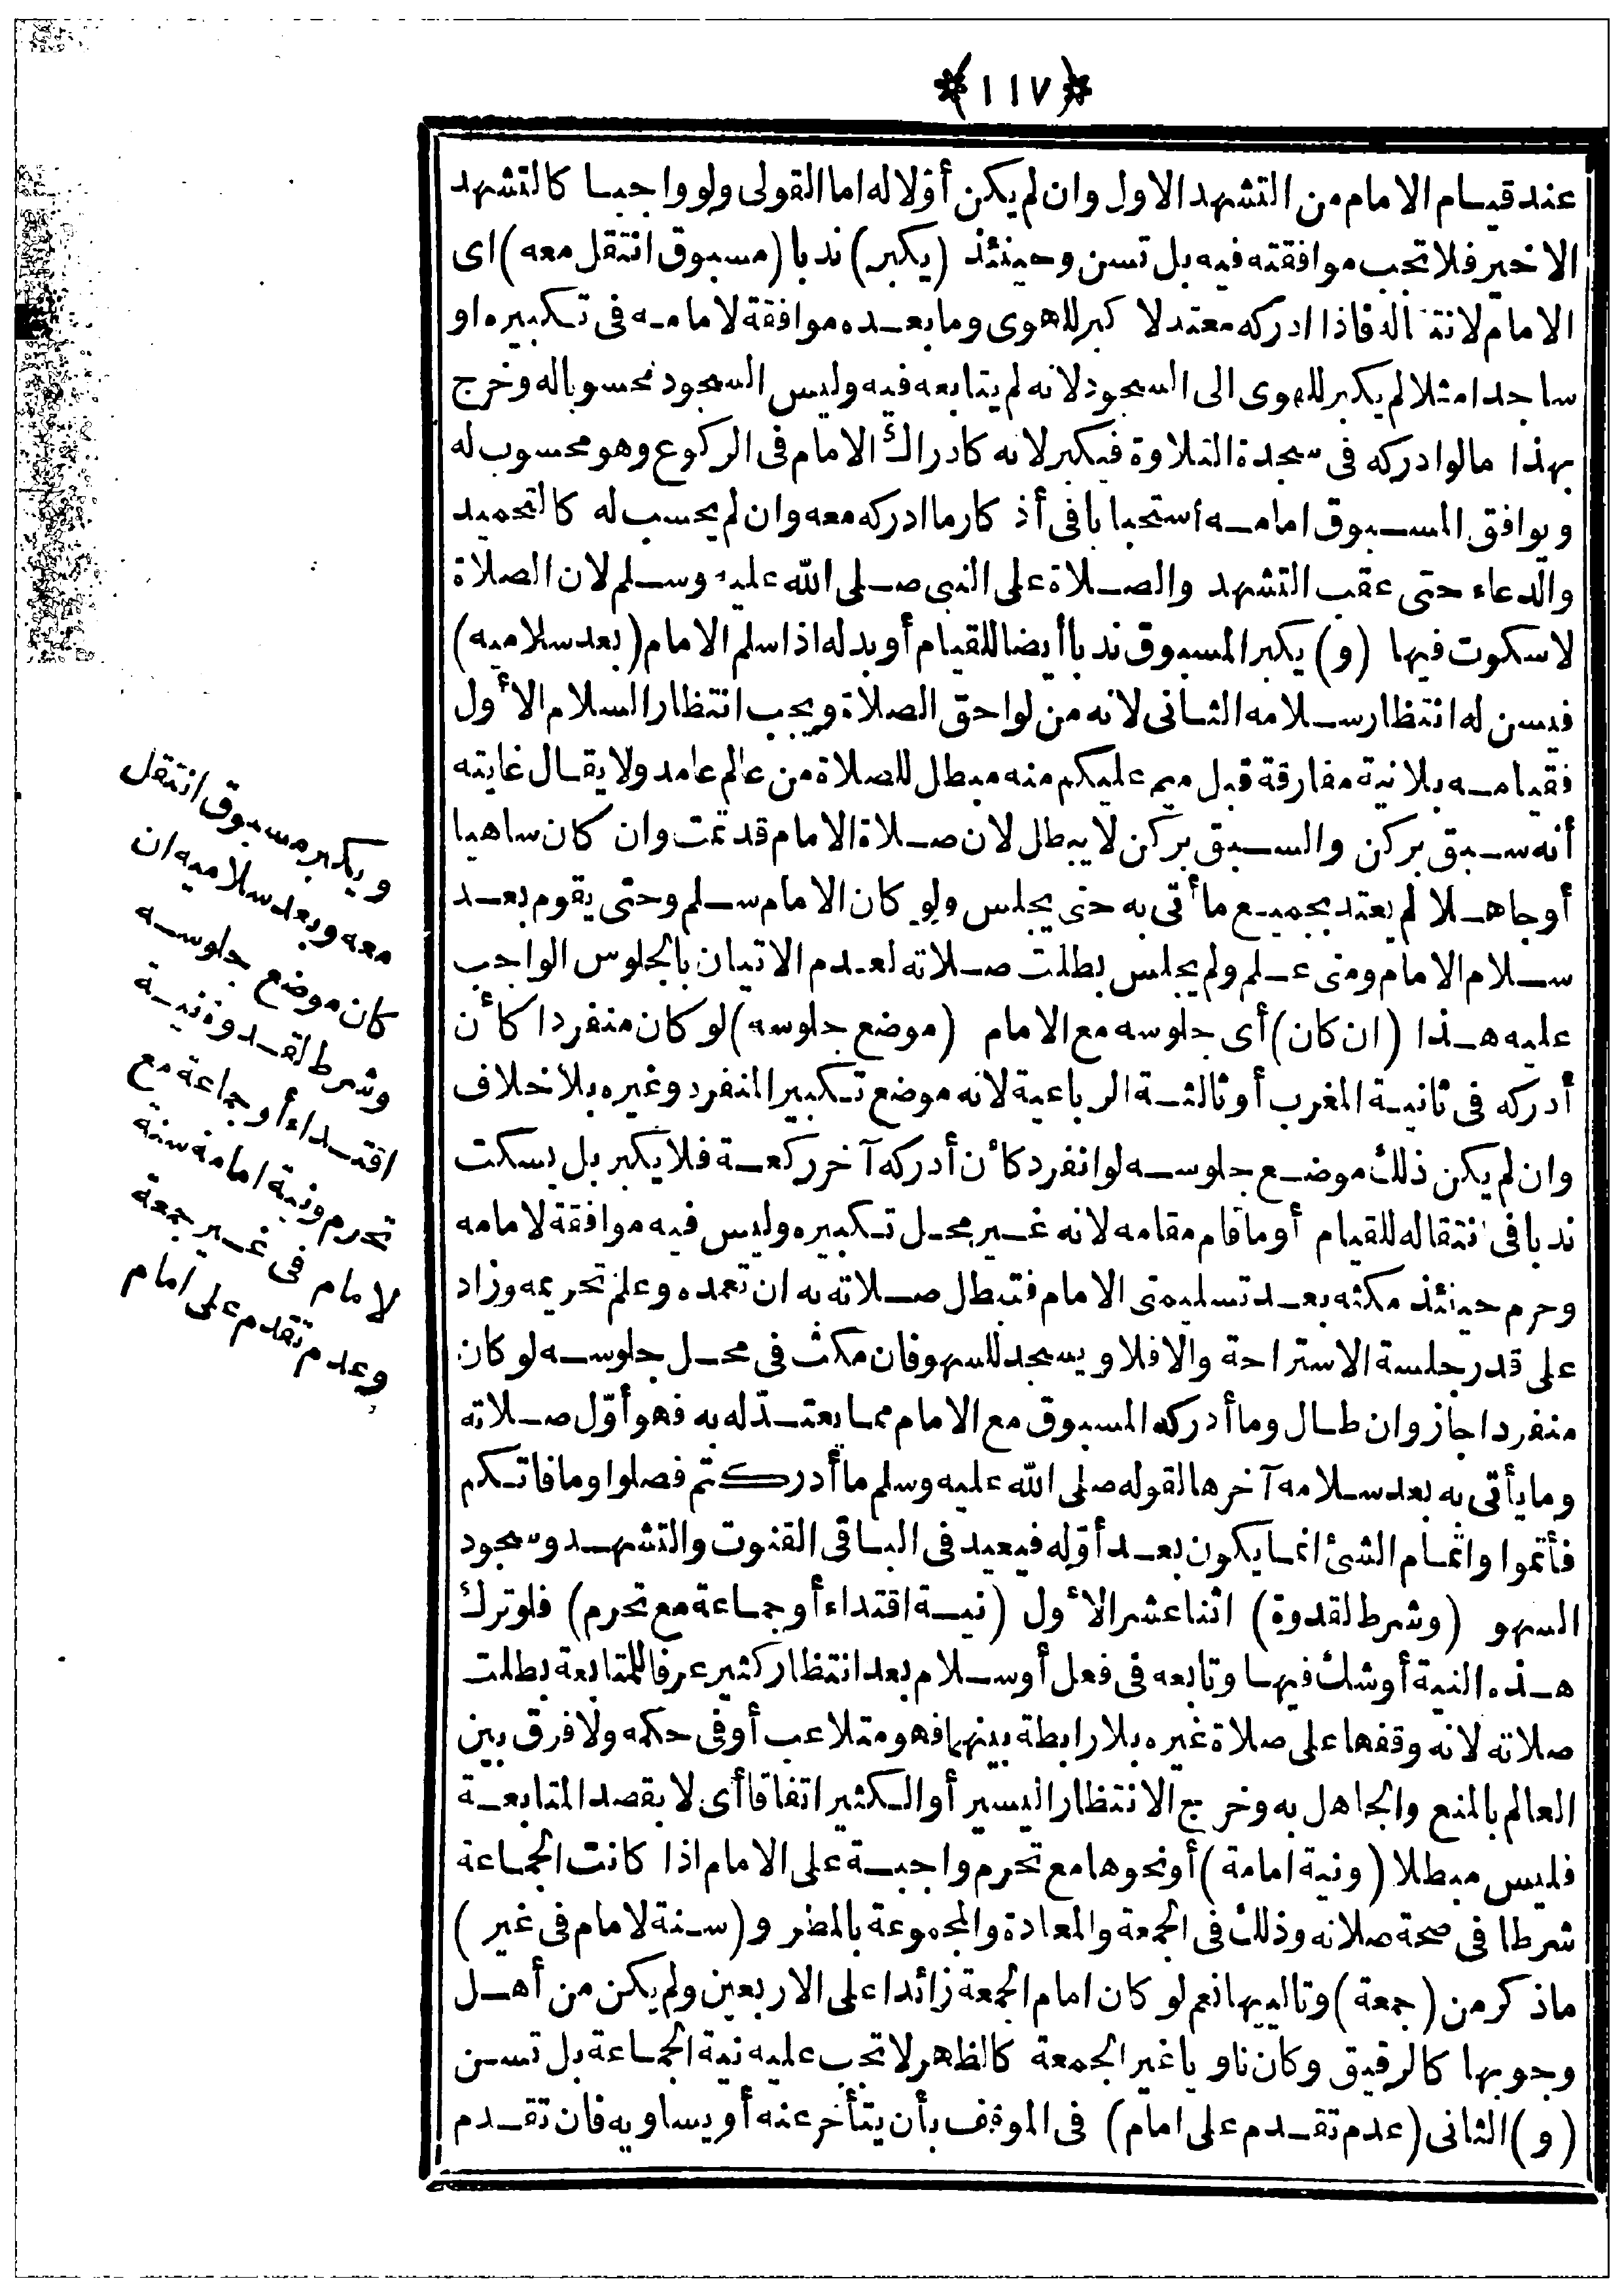 ﴿١١٧﴾
عند قيام الامام من التشهد الاول وان لم يكن أولا له اما القولى ولو واجبا كالتشهد
الاخير فلا تجب موافقته فيه بل تسن وحينئذ (يكبر) ندبا (مسبوق انتقل معه) اى
الامام لانتقاله فاذا ادركه معتدلا كبر للهوى وما بعده موافقة لامامه فى تكبيره او
ساجدا مثلا لم يكبر للهوى الى السجود لانه لم يتابعه فيه وليس السجود محسوبا له وخرج
بهذا مالو ادركه فى سجدة التلاوة فيكبر لانه كادراك الامام فى الركوع وهو محسوب له
ويوافق المسبوق امامه استحبابا فى أذكار ما ادركه معه وان لم يحسب له كالتحميد
والدعاء حتى عقب التشهد والصلاة على النبى صلى الله عليه وسلم لان الصلاة
لا سكوت فيها (و) يكبر المسبوق ندبا أيضا للقيام أو بدله اذا سلم الامام (بعد سلاميه)
فيسن له انتظار سلامه الثانى لانه من لواحق الصلاة ويجب انتظار السلام الأول
فقيامه بلا نية مفارقة قبل ميم عليكم منه مبطل للصلاة من عالم عامد ولا يقال غايته
أنه سبق بركن والسبق بركن لا يبطل لان صلاة الامام قد تمت وان كان ساهيا
أو جاهلا لم يعتد بجميع ما أتى به حتى يجلس ولو كان الامام سلم وحتى يقوم بعد
سلام الامام ومتى علم ولم يجلس بطلت صلاته لعدم الاتيان بالجلوس الواجب
عليه هذا (ان كان) أى جلوسه مع الامام (موضع جلوسه) لو كان منفردا كأن
أدركه فى ثانية المغرب أو ثالثة الرباعية لانه موضع تكبير المنفرد وغيره بلا خلاف
وان لم يكن ذلك موضع جلوسه لو انفرد كأن أدركه آخر ركعة فلا يكبر بل يسكت
ندبا فى انتقاله للقيام أو ما قام مقامه لانه غير محل تكبيره وليس فيه موافقة لامامه
وحرم حينئذ مكثه بعد تسليمتى الامام فتبطل صلاته به ان تعمده وعلم تحريمه وزاد
على قدر جلسة الاستراحة والا فلا ويسجد للسهو فان مكث فى محل جلوسه لو كان
منفردا جاز وان طال وما أدركه المسبوق مع الامام مما يعتد له به فهو أول صلاته
وما يأتى به بعد سلامه آخرها لقوله صلى الله عليه وسلم ما أدركتم فصلوا وما فاتكم
فأتموا واتمام الشئ انما يكون بعد أوله فيعيد فى الباقى القنوت والتشهد وسجود
السهو (وشرط لقدوة) اثنا عشر الأول (نية اقتداء أو جماعة مع تحرم) فلو ترك
هذه النية أو شك فيها وتابعه فى فعل أو سلام بعد انتظار كثير عرفا للمتابعة بطلت
صلاته لانه وقفها على صلاة غيره بلا رابطة بينهما فهو متلاعب أو فى حكمه ولا فرق بين
العالم بالمنع والجاهل به وخرج الانتظار اليسير أو الكثير اتفاقا أى لا بقصد المتابعة
فليس مبطلا (ونية امامة) أو نحوها مع تحرم واجبة على الامام اذا كانت الجماعة
شرطا فى صحة صلاته وذلك فى الجمعة والمعادة والمجموعة بالمطر و (سنة لامام فى غير)
ماذكر من (جمعة) وتالييها نعم لو كان امام الجمعة زائدا على الاربعين ولم يكن من أهل
وجوبها كالرقيق وكان ناويا غير الجمعة كالظهر لا تجب عليه نية الجماعة بل تسن
(و) الثانى (عدم تقدم على امام) فى الموقف بأن يتأخر عنه أو يساويه فان تقدم
ويكبر مسبوق انتقل
معه وبعد سلاميه ان
كان موضع جلوسه
وشرط لقدوة نية
اقتداء أو جماعة مع
تحرم ونية امامة سنة
لامام فى غير جمعة
وعدم تقدم على امام